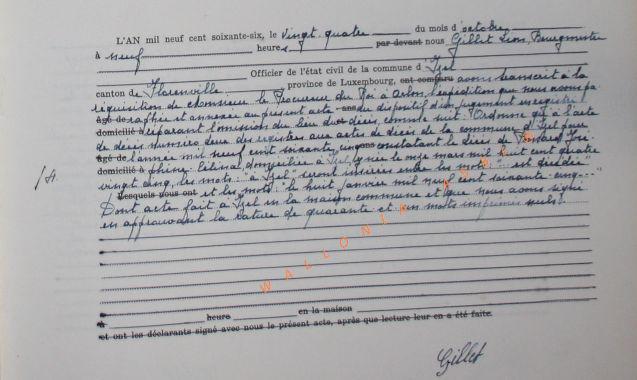 L'AN mil neuf cent soixante-six, le Vingt quatre du mois d'octobre
à neuf heures par devant nous Gillet Léon, Bourgmestre
Officier de l'état civil de la commune d'Izel
canton de Florenville, province de Luxembourg, ont comparu avons transcrit à la
réquisition de Monsieur le Procureur du Roi à Arlon l'expédition que nous avons pa
âgé de raphée et annexée au présent acte ans du dispositif d'un jugement enregistré
domicilié à réparant l'omission du lieu du décès, comme suit: Ordonne qu'à l'acte
de décès numéro deux des registres aux actes de décès de la commune d'Izel pour
âgé de l'année mil neuf cent soixante cinq ans constatant le décès de José
domicilié à phine, célibat. domiciliée à Izel, y née le onze mars mil huit cent quatre
vingt cinq, les mots: "à Izel" seront insérés entre les mots "est décédée"
Lesquels nous ont et les mots "le huit janvier mil neuf cent soixante cinq..."
Dont acte fait à Izel en la maison commune et que nous avons signé
en approuvant la rature de quarante et un mots imprimés nuls.
WALLONIA
à heure en la maison
et ont les déclarants signé avec nous le présent acte, après que lecture leur en a été faite.
Gillet